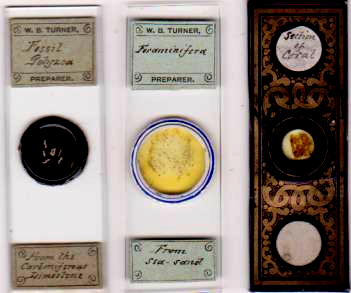 W. B. TURNER,
Fossil
Polyzoa
PREPARER.
From the
Carboniferous
Limestone
W. B. TURNER,
Foraminifera
PREPARER.
From
Sea-sand
Section
of
Coral